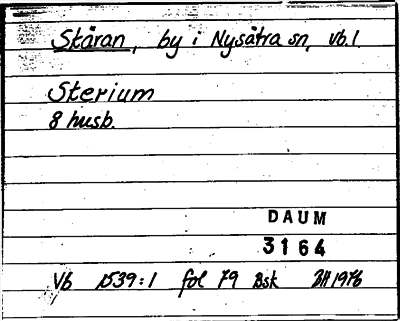 Skäran, by i Nysätra sn, Vb. l
Sterium
8 husb.
DAUM
3164
Vb 1539:1 fol 79 Bsk BH 1976